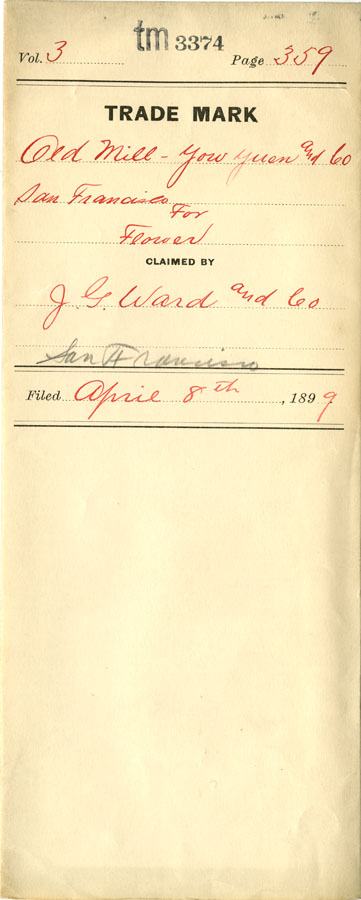 tm 3374
Vol. 3 Page 359
TRADE MARK
Old Mill - Yow Yuen and Co
San Francisco
For
Flower
CLAIMED BY
J. G. Ward and Co
San Francisco
Filed April 8th, 1899